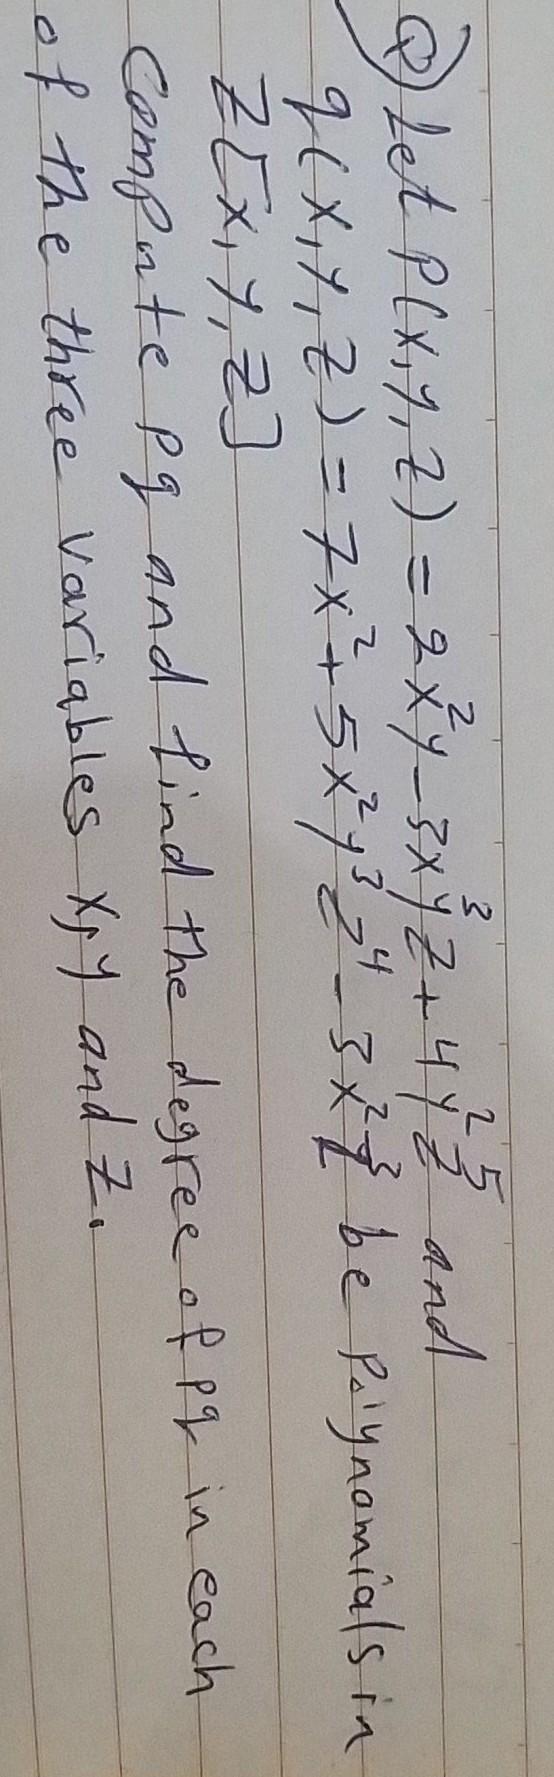 Q) Let P(x,y,z) = 2x²y - 3xy³z + 4y²z⁵ and
q(x,y,z) = 7x² + 5x²y³z⁴ - 3x²z³ be polynomials in
Z[x,y,z]
Compute pq and find the degree of pq in each
of the three variables x, y and z.